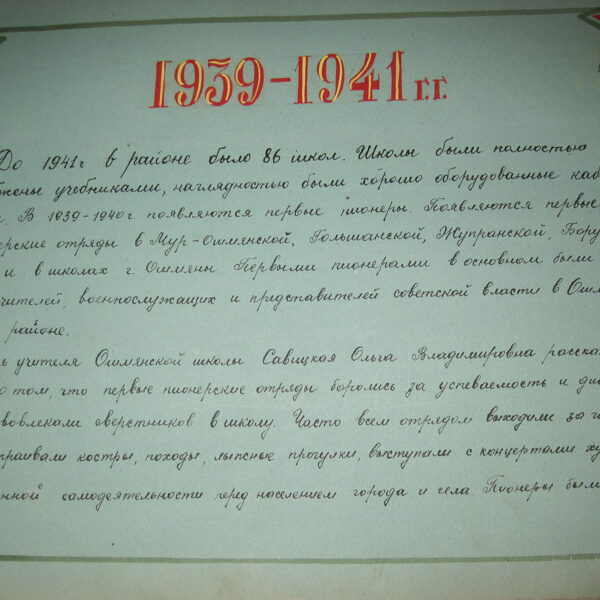 1939-1941 г.г.
До 1941 г в районе было 86 школ. Школы были полностью
жены учебниками, наглядностью, были хорошо оборудованные каб
. В 1939-1940 г. появляются первые пионеры. Появляются первые
ерские отряды в Мур-Ошмянской, Гольшанской, Жупранской, Бору
и в школах г. Ошмяны. Первыми пионерами в основном были
чителей, военнослужащих и представителей советской власти в Ошм
районе.
ь учителя Ошмянской школы Савицкая Ольга Владимировна расска
о том, что первые пионерские отряды боролись за успеваемость и дис
вовлекали сверстников в школу. Часто всем отрядом выходили за го
траивали костры, походы, лыжные прогулки, выступали с концертами ху
енной самодеятельности перед населением города и села. Пионеры были